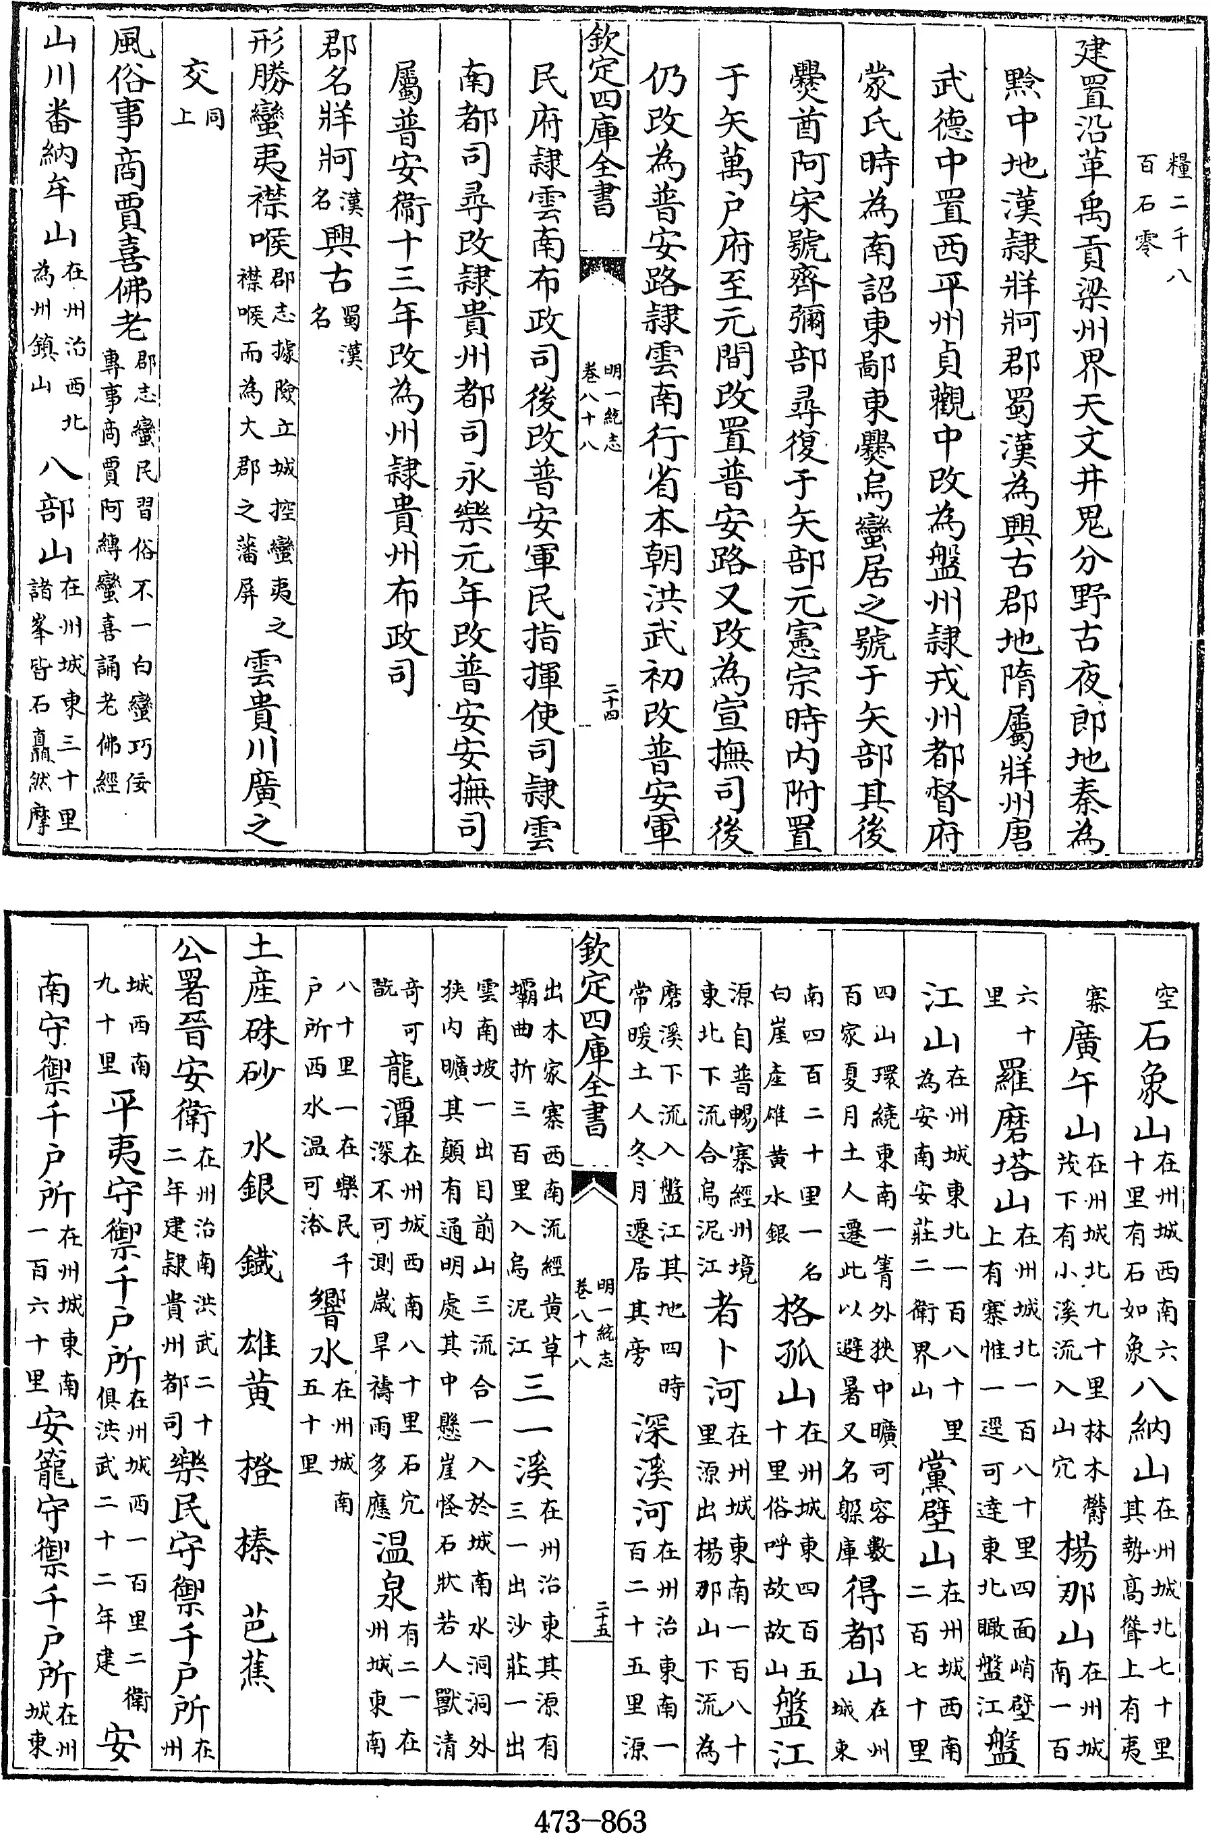 糧二千八
百石零
建置沿革禹貢梁州界天文井鬼分野古夜郎地秦為
黔中地漢隸牂牁郡蜀漢為興古郡地隋屬牂州唐
武德中置西平州貞觀中改為盤州隸戎州都督府
蒙氏時為南詔東鄙東爨烏蠻居之號于矢部其後
爨酋阿宋號齊彌部尋復于矢部元憲宗時内附置
于矢萬户府至元間改置普安路又改為宣撫司後
仍改為普安路隸雲南行省本朝洪武初改普安軍
欽定四庫全書
明一統志
卷八十八
二十四
民府隸雲南布政司後改普安軍民指揮使司隸雲
南都司尋改隸貴州都司永樂元年改普安安撫司
屬普安衞十三年改為州隸貴州布政司
郡名牂牁漢名興古蜀漢名
形勝蠻夷襟喉郡志據險立城控蠻夷之襟喉而為大郡之藩屏雲貴川廣之
交同上
風俗事商賈喜佛老郡志蠻民習俗不一白蠻巧佞專事商賈阿縛蠻喜誦老佛經
山川番納牟山在州治西北為州鎮山八部山在州城東三十里諸峯皆石矗然摩
空石象山在州城西南六十里有石如象八納山在州城北七十里其勢高聳上有夷
寨廣午山在州城北九十里林木欝茂下有小溪流入山穴楊那山在州城南一百
六十里羅磨塔山在州城北一百八十里四面峭壁上有寨惟一逕可達東北瞰盤江盤
江山在州城東北一百八十里為安南安莊二衛界山黨壁山在州城西南二百七十里
四山環繞東南一箐外狹中曠可容數百家夏月土人遷此以避暑又名躲庫得都山在州城東
南四百二十里一名白崖産雄黄水銀格孤山在州城東四百五十里俗呼故故山盤江
源自普暢寨經州境東北下流合烏泥江者卜河在州城東南一百八十里源出楊那山下流為
磨溪下流入盤江其地四時常暖土人冬月遷居其旁深溪河在州治東南一百二十五里源
欽定四庫全書
明一統志
卷八十八
二十五
出木家寨西南流經黄草壩曲折三百里入烏泥江三一溪在州治東其源有三一出沙莊一出
雲南坡一出目前山三流合一入於城南水洞洞外狹内曠其顛有通明處其中懸崖怪石狀若人獸清
奇可翫龍潭在州城西南八十里石穴深不可測歲旱禱雨多應温泉有二一在州城東南
八十里一在樂民千户所西水温可浴響水在州城南五十里
土産硃砂　水銀　鐡　雄黄　橙　榛　芭蕉
公署晉安衛在州治南洪武二十二年建隸貴州都司樂民守禦千户所在州
城西南九十里平夷守禦千户所在州城西一百里二衛俱洪武二十二年建安
南守禦千户所在州城東南一百六十里安籠守禦千户所在州城東
473-863